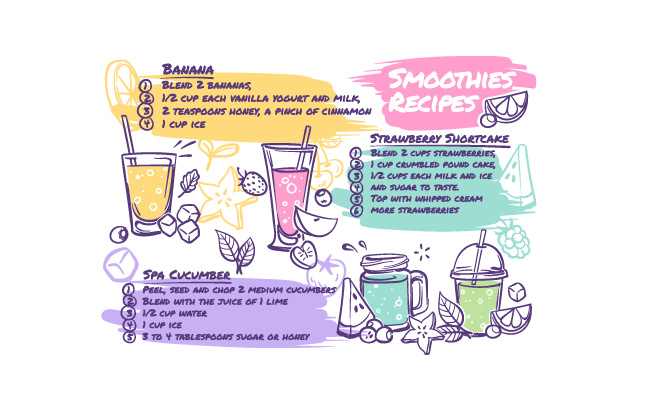 Smoothies
Recipes
Banana
1 Blend 2 bananas,
2 1/2 cup each vanilla yogurt and milk,
3 2 teaspoons honey, a pinch of cinnamon
4 1 cup ice
Strawberry Shortcake
1 Blend 2 cups strawberries,
2 1 cup crumbled pound cake,
3 1/2 cups each milk and ice
4 and sugar to taste.
5 Top with whipped cream
6 more strawberries
Spa Cucumber
1 Peel, seed and chop 2 medium cucumbers
2 Blend with the juice of 1 lime
3 1/2 cup water
4 1 cup ice
5 3 to 4 tablespoons sugar or honey